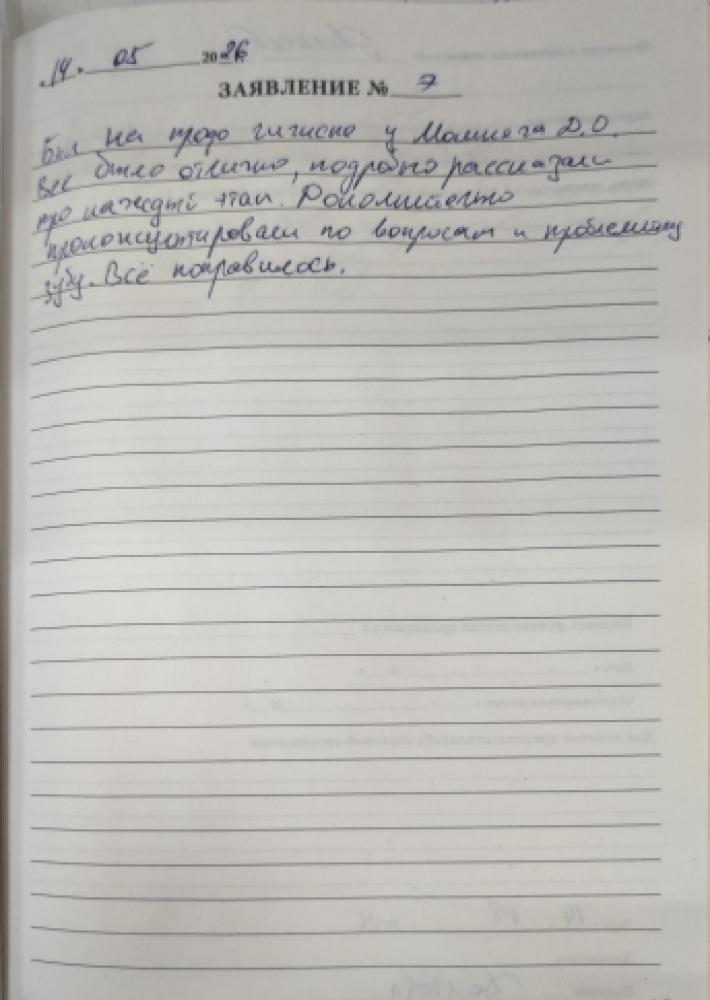 14. 05 2026
ЗАЯВЛЕНИЕ № 7
Был на проф гигиене у Д.О.
Все было отлично, подробно рассказали
про каждый этап. Дополнительно
проконсультировали по вопросам и проблемному
зубу. Всё понравилось.